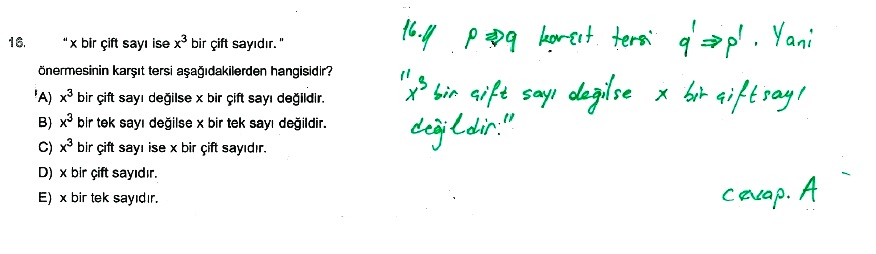 16. "x bir çift sayı ise x³ bir çift sayıdır."
önermesinin karşıt tersi aşağıdakilerden hangisidir?
A) x³ bir çift sayı değilse x bir çift sayı değildir.
B) x³ bir tek sayı değilse x bir tek sayı değildir.
C) x³ bir çift sayı ise x bir çift sayıdır.
D) x bir çift sayıdır.
E) x bir tek sayıdır.
16.// p ⇒ q karşıt tersi q' ⇒ p'. Yani
"x³ bir çift sayı değilse x bir çift sayı
değildir."
cevap. A